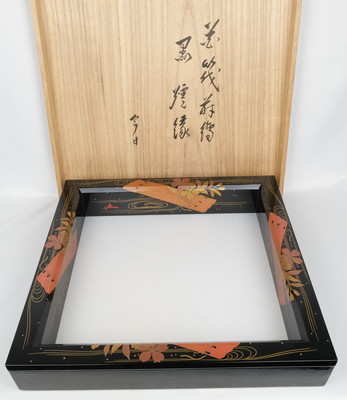 花筏蒔繪
黒爐縁